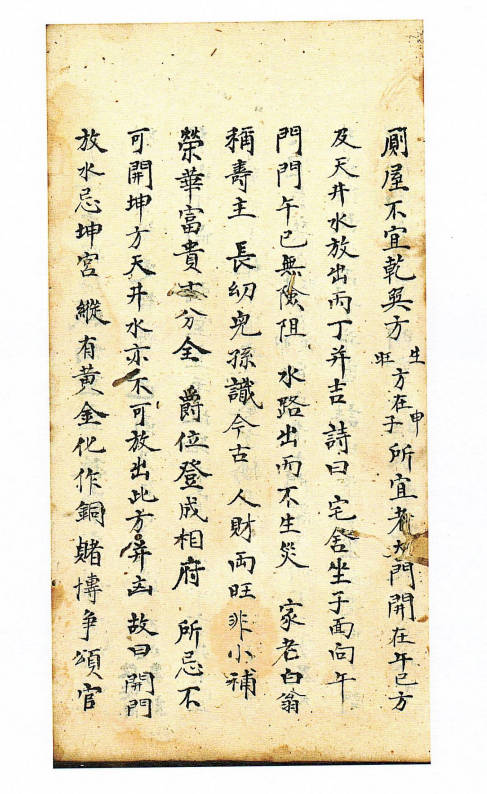 厠屋不宜乾巽方 生旺方在申子 所宜者大門開在午巳方
及天井水放出丙丁并吉 詩曰 宅舍坐子面向午
門門午巳無險阻 水路出丙不生災 家老白翁
稱壽主 長幼兒孫識今古 人財両旺非小補
榮華富貴十分全 爵位登成相府 所忌不
可開坤方天井水亦不可放出此方并凶 故曰開門
放水忌坤宮 縱有黃金化作銅賭博争頌官